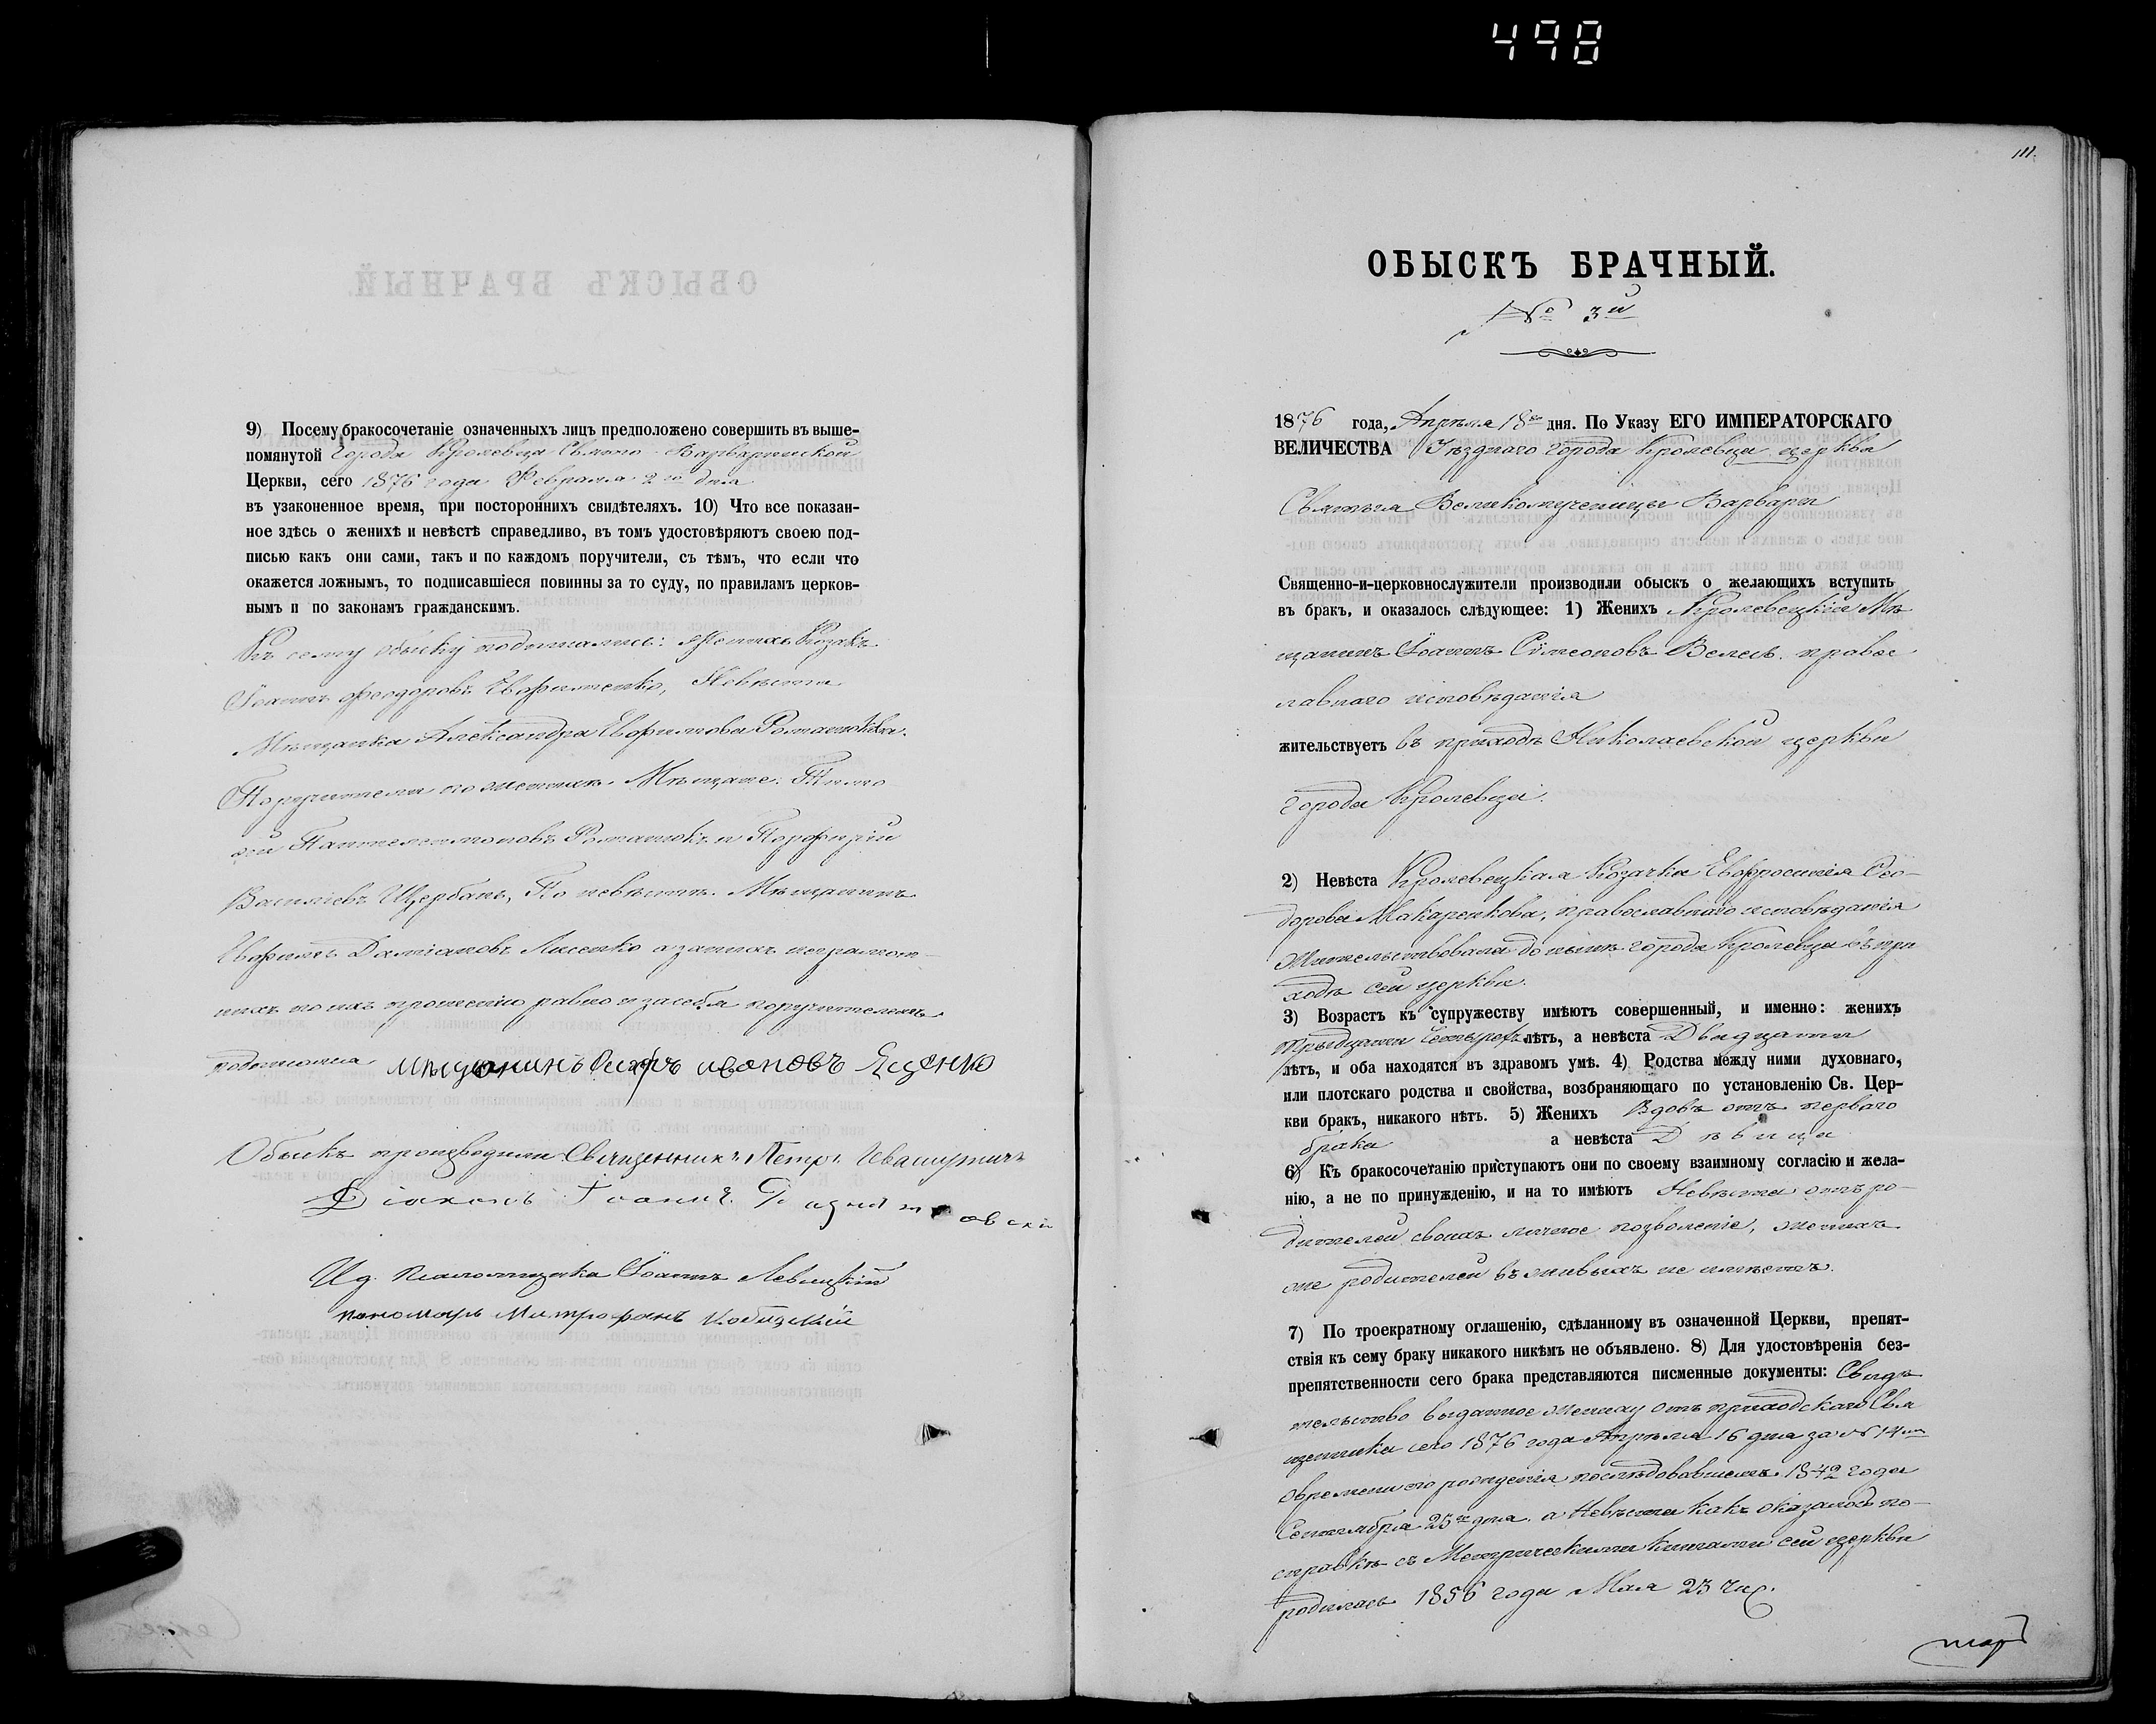 498
9) Посему бракосочетаніе означенныхъ лицъ предположено совершить въ выше-
помянутой города Кролевца Свято-Варваринской
Церкви, сего 1876 года Февраля 2го дня
въ узаконенное время, при постороннихъ свидѣтеляхъ. 10) Что все показан-
ное здѣсь о женихѣ и невѣстѣ справедливо, въ томъ удостовѣряютъ своею под-
писью какъ они сами, такъ и по каждомъ поручители, съ тѣмъ, что если что
окажется ложнымъ, то подписавшіеся повинны за то суду, по правиламъ церков-
нымъ и по законамъ гражданскимъ.
Къ сему обыску подписались: Женихъ Козакъ
Іоаннъ Феодоровъ Евфименко, Невѣста
Мѣщанка Александра Евфимова
Поручители по женихѣ Мѣщане: Тимо
ѳей Пантелеимоновъ Романюкъ и Порфирій
Василіевъ Щербань, По невѣстѣ Мѣщанинъ
Евфимъ Даміановъ Лисенко а за нихъ неграмот-
ныхъ по ихъ прошенію равно и за себя поручителемъ
подписался мѣщанинъ Иановъ Яценко
Обыскъ производили: Священникъ Петръ Ивашутичъ
Діаконъ Іоаннъ
И.д. Псаломщика Іоаннъ Левицкій
пономарь Митрофанъ
111.
ОБЫСКЪ БРАЧНЫЙ.
№ 3й
1876 года, Апрѣля 18го дня. По Указу ЕГО ИМПЕРАТОРСКАГО
ВЕЛИЧЕСТВА Уѣзднаго города Кролевца церкви
Святыя Великомученицы Варвары
Священно-и-церковнослужители производили обыскъ о желающихъ вступить
въ бракъ, и оказалось слѣдующее: 1) Женихъ Кролевецкій Мѣ
щанинъ Іоаннъ Симеоновъ Велесъ правос
лавнаго исповѣданія
жительствуетъ въ приходѣ Николаевской церкви
города Кролевца.
2) Невѣста Кролевецкая Козачка Евфросинія Ѳео-
дорова Макаренкова, православнаго исповѣданія
Жительствовала до нынѣ города Кролевца въ при
ходѣ сей церкви.
3) Возрастъ къ супружеству имѣютъ совершенный, и именно: женихъ
тридцати четырехъ лѣтъ, а невѣста Двадцати
лѣтъ, и оба находятся въ здравомъ умѣ. 4) Родства между ними духовнаго,
или плотскаго родства и свойства, возбраняющаго по установленію Св. Цер-
кви бракъ, никакого нѣтъ. 5) Женихъ Вдовъ отъ перваго
брака а невѣста Дѣвица
6) Къ бракосочетанію приступаютъ они по своему взаимному согласію и жела-
нію, а не по принужденію, и на то имѣютъ Невѣста отъ ро-
дителей своихъ личное позволеніе, женихъ
же родителей въ живыхъ не имѣетъ.
7) По троекратному оглашенію, сдѣланному въ означенной Церкви, препят-
ствія къ сему браку никакого никѣмъ не объявлено. 8) Для удостовѣренія без-
препятственности сего брака представляются писменные документы: Свидѣ
тельство выданное жениху отъ приходскаго Свя
щенника сего 1876 года Апрѣля 16 дня за № 14
о времени его рожденія послѣдовавшемъ 1842 года
Сентября 25го дня, а Невѣста какъ оказалось по
справкѣ съ Метрическими книгами сей церкви
родилась 1856 года Мая 23 чис.